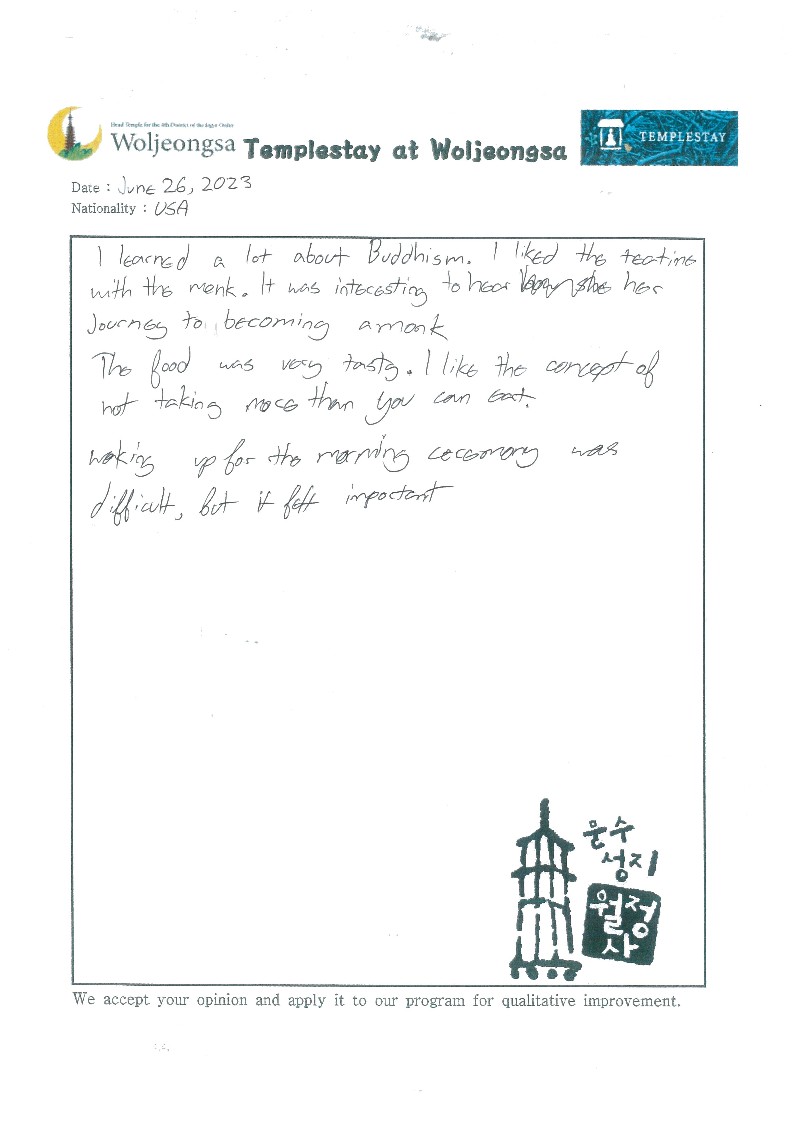 Head Temple for the 4th District of the Jogye Order
Woljeongsa Templestay at Woljeongsa
TEMPLESTAY
Date : June 26, 2023
Nationality : USA
I learned a lot about Buddhism. I liked the teatime
with the monk. It was interesting to hear her
Journey to becoming a monk
The food was very tasty. I like the concept of
not taking more than you can eat.
waking up for the morning ceremony was
difficult, but it felt important
문수
성지
월정
사
We accept your opinion and apply it to our program for qualitative improvement.